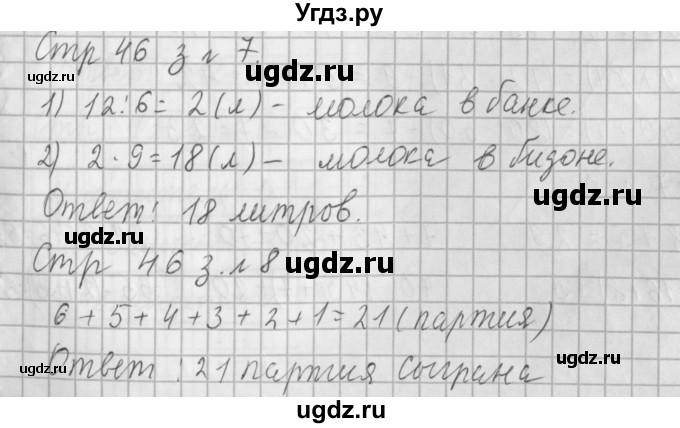 Угдз.ру
Стр 46 з № 7.
ugdz.ru ugdz.ru ugdz.ru
1) 12:6= 2(л) - молока в банке.
2) 2·9=18(л) - молока в бидоне.
ugdz.ru ugdz.ru
Ответ: 18 литров.
ugdz.ru
Стр 46 з. № 8
ugdz.ru ugdz.ru
6+5+4+3+2+1=21(партия)
Ответ: 21 партия сыграна
ugdz.ru ugdz.ru
ugdz.ru